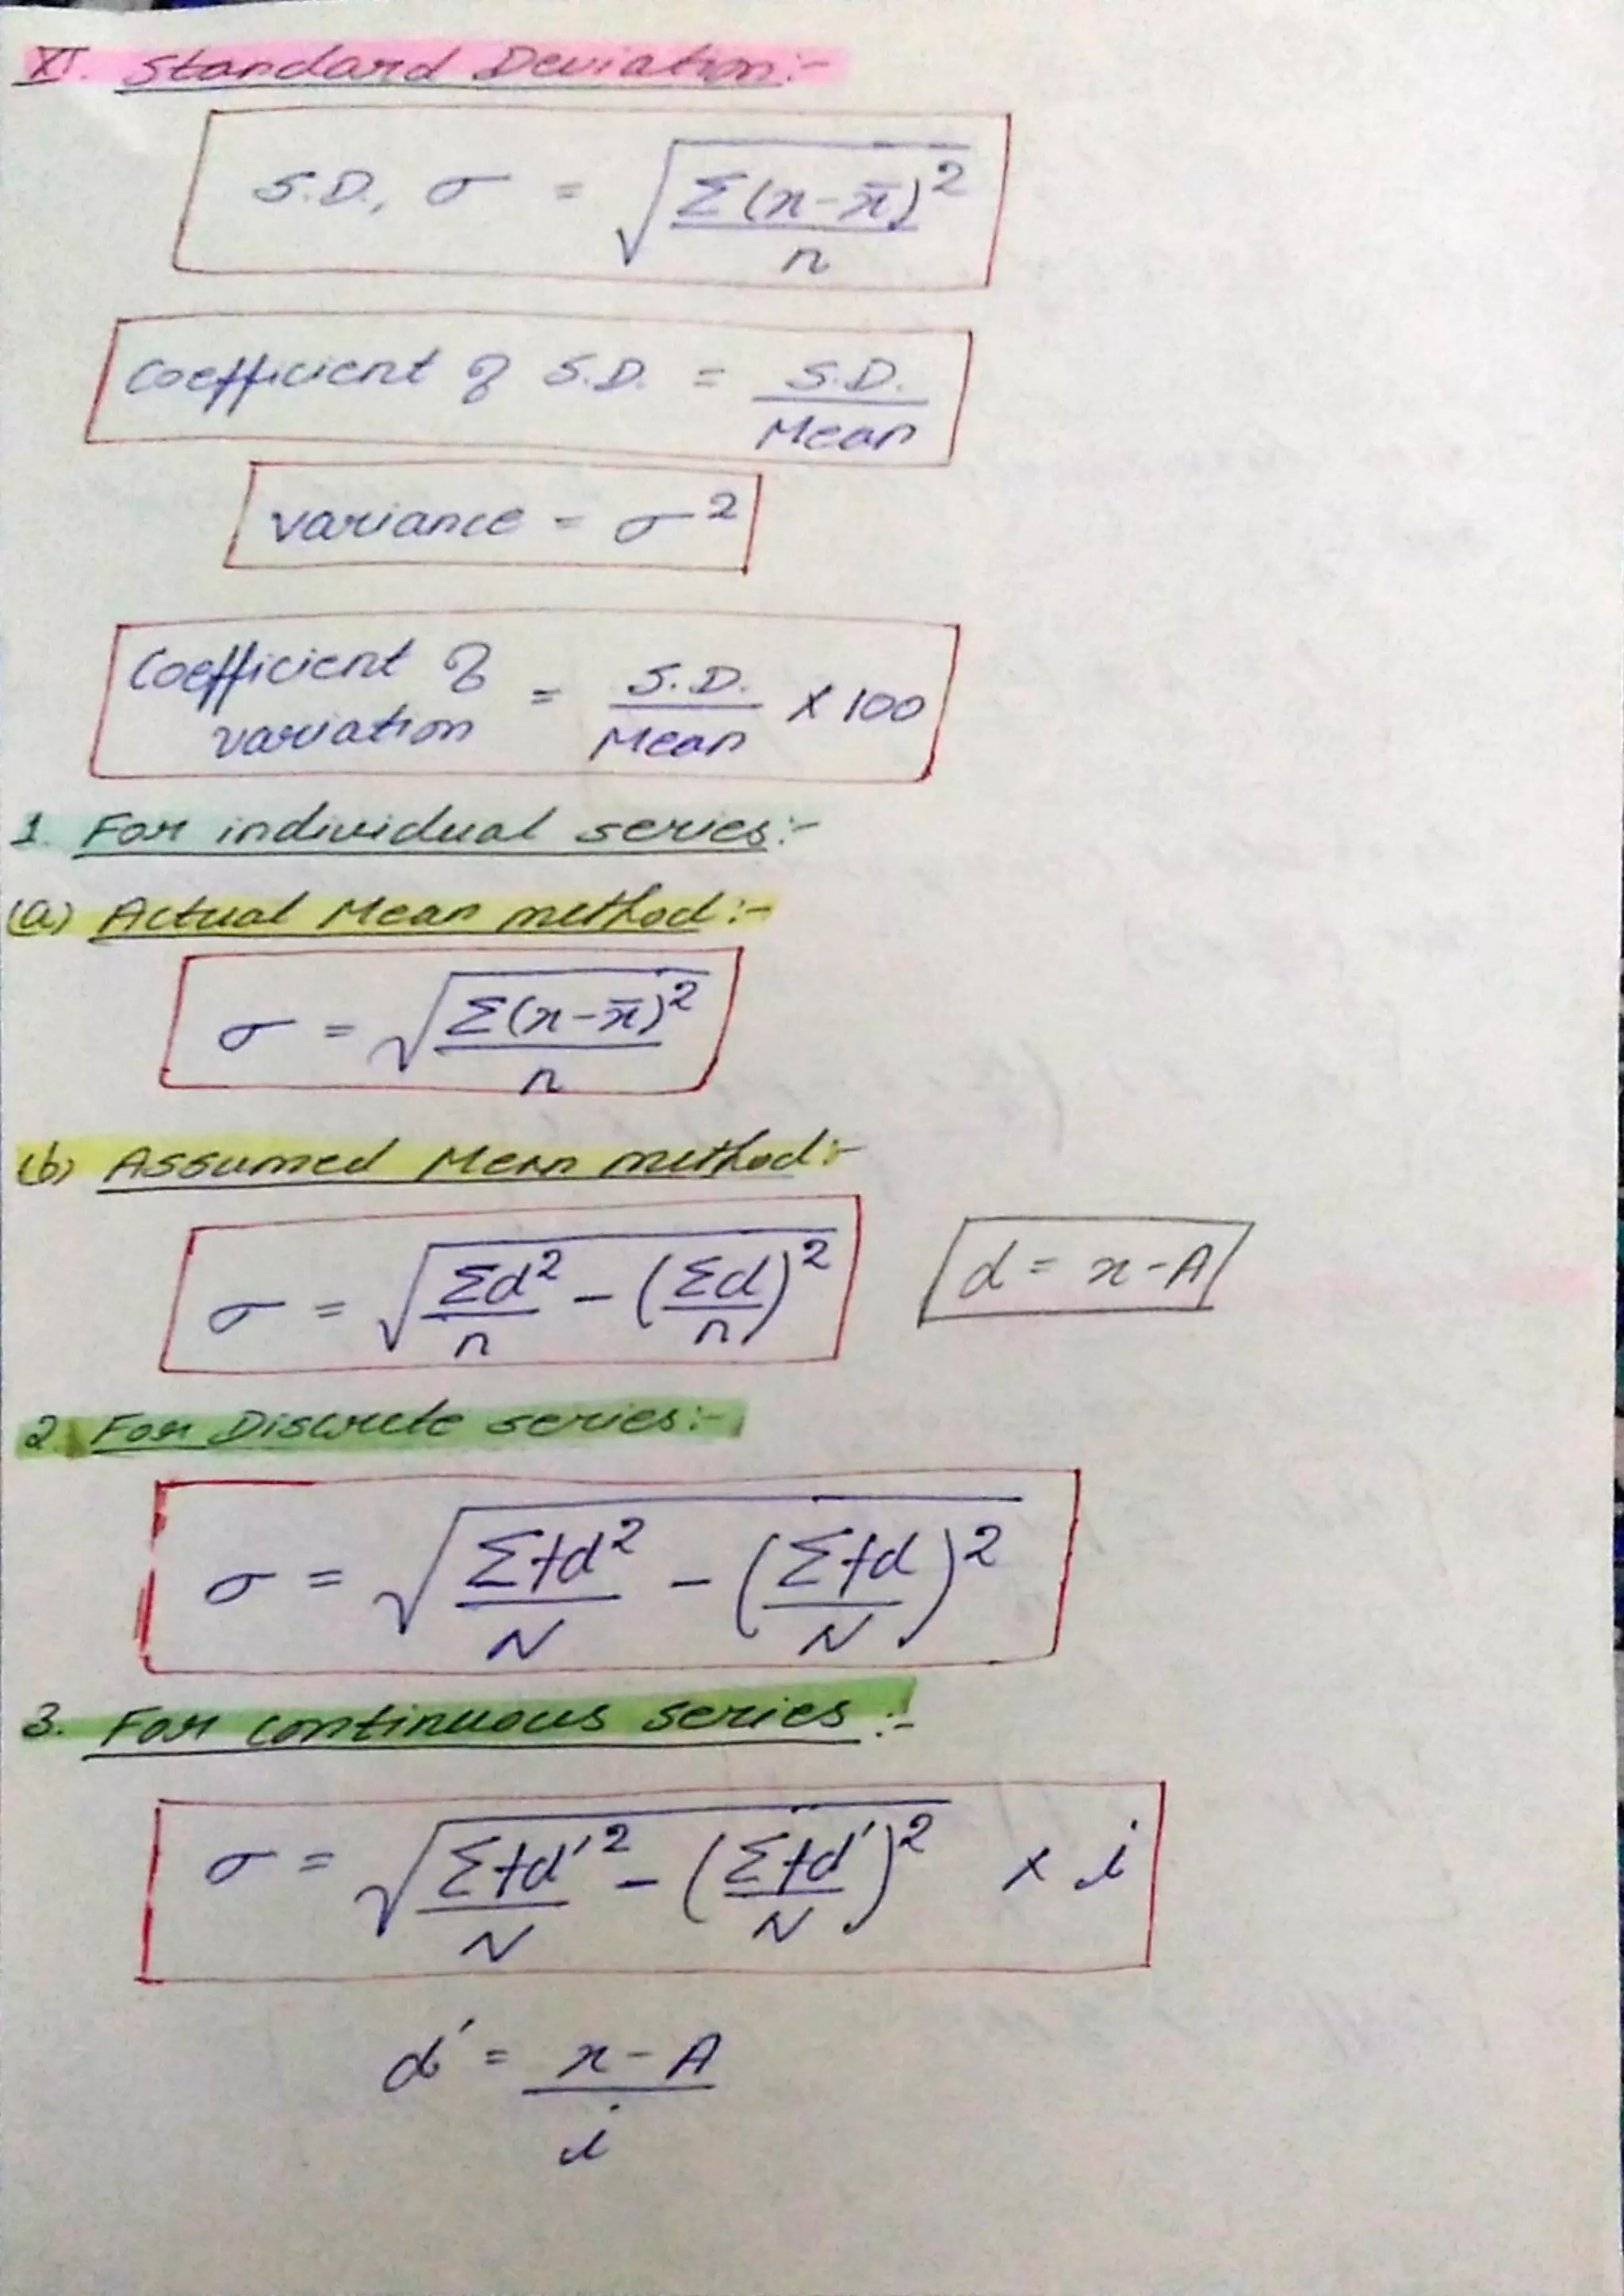 XI. Standard Deviation:-
S.D., σ = √(Σ(x-x̄)²/n)
Coefficient of S.D. = S.D./Mean
Variance = σ²
Coefficient of variation = S.D./Mean × 100
1. For individual series:-
(a) Actual Mean method:-
σ = √(Σ(x-x̄)²/n)
(b) Assumed Mean method:-
σ = √(Σd²/n - (Σd/n)²) d = x-A
2. For Discrete series:-
σ = √(Σfd²/N - (Σfd/N)²)
3. For continuous series:-
σ = √(Σfd'²/N - (Σfd'/N)²) × i
d' = x-A/i